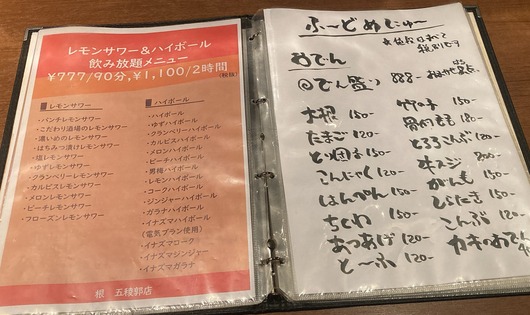 レモンサワー&ハイボール
飲み放題メニュー
¥777/90分,¥1,100/2時間
(税抜)
レモンサワー
・パンチレモンサワー
・こだわり酒場のレモンサワー
・濃いめのレモンサワー
・はちみつ漬けレモンサワー
・塩レモンサワー
・ゆずレモンサワー
・クランベリーレモンサワー
・カルピスレモンサワー
・メロンレモンサワー
・ピーチレモンサワー
・フローズンレモンサワー
ハイボール
・ハイボール
・ゆずハイボール
・クランベリーハイボール
・カルピスハイボール
・メロンハイボール
・ピーチハイボール
・男梅ハイボール
・レモンハイボール
・コークハイボール
・ジンジャーハイボール
・ガラナハイボール
・イナズマハイボール
(電気ブラン使用)
・イナズマコーク
・イナズマジンジャー
・イナズマガラナ
根 五稜郭店
ふ〜どめにゅ〜
おでん
おでん盛り 888-
大根 150-
たまご 120-
とり団子 150-
こんにゃく 120-
はんぺん 150-
ちくわ 150-
あつあげ 120-
と〜ふ 120-
竹の子 150-
180-
とろろこんぶ 120-
牛スジ 200-
がんも 150-
しらたき 150-
こんぶ 120-
カキのおでん